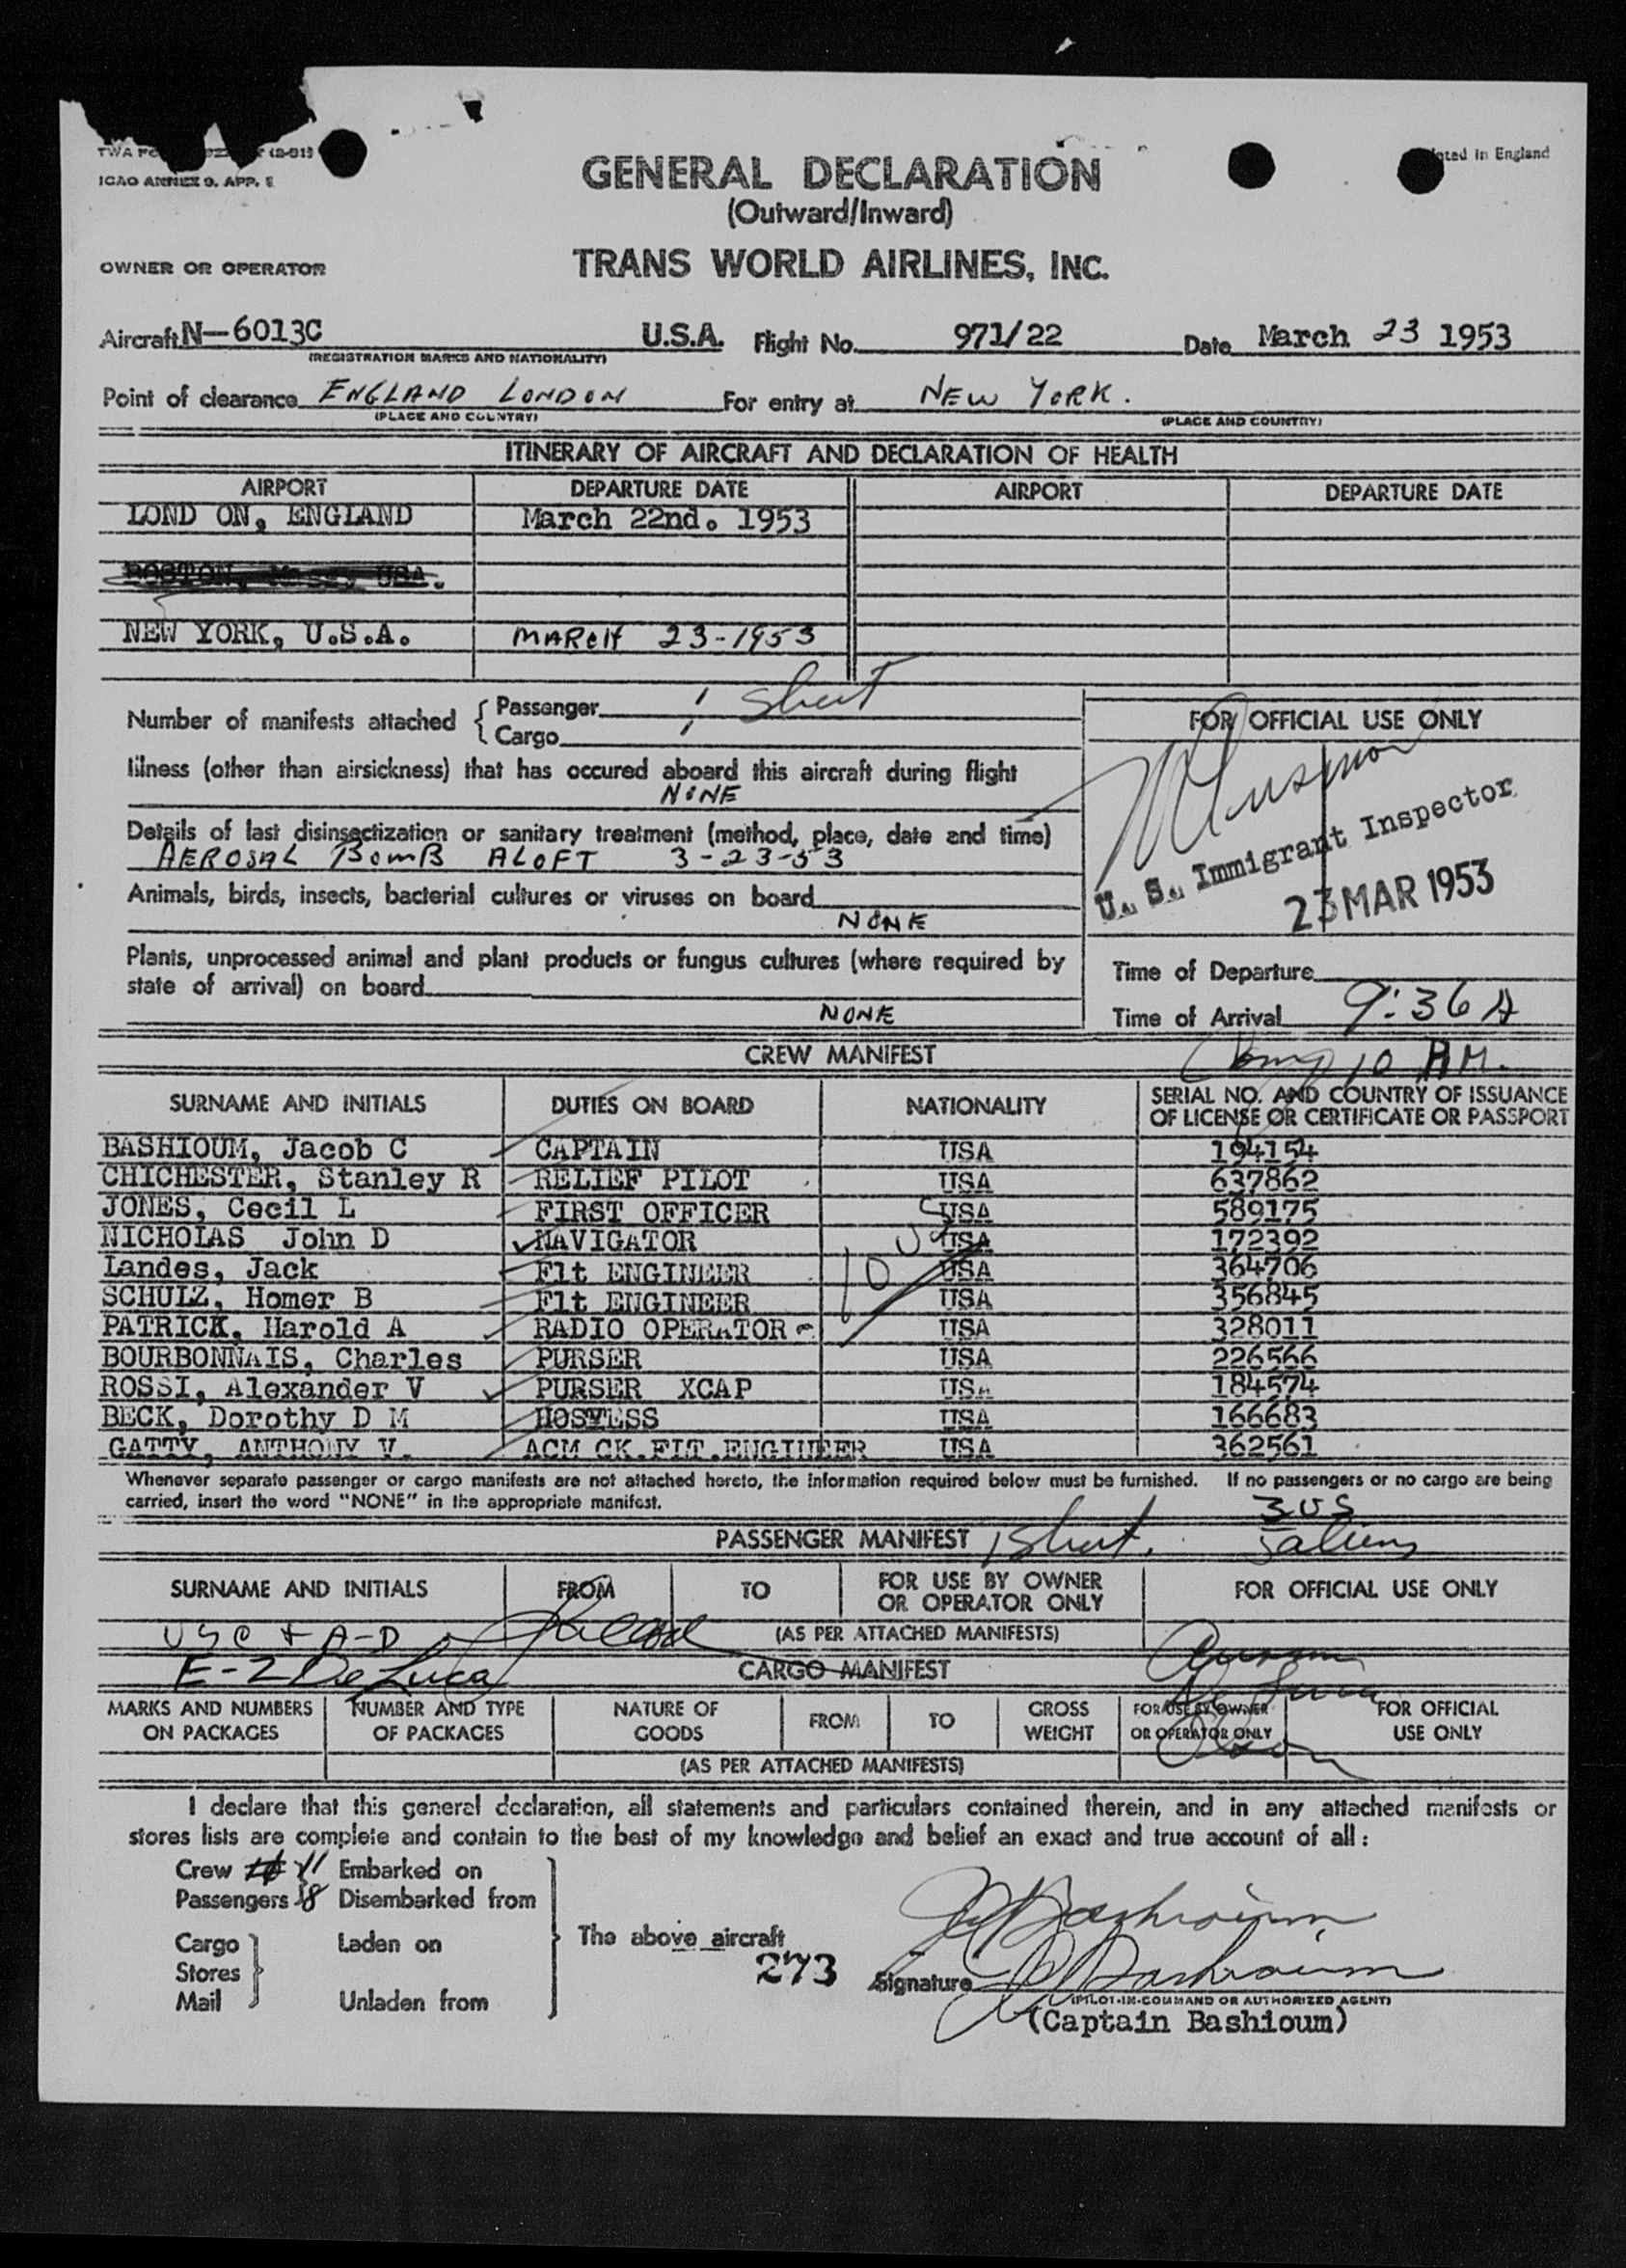 TWA FO
(2-51)
ICAO ANNEX 9. APP. 1
nted in England
GENERAL DECLARATION
(Outward/Inward)
OWNER OR OPERATOR
TRANS WORLD AIRLINES, INC.
Aircraft N-6013C U.S.A. Flight No. 971/22 Date March 23 1953
(REGISTRATION MARKS AND NATIONALITY)
Point of clearance ENGLAND LONDON For entry at NEW YORK.
(PLACE AND COUNTRY) (PLACE AND COUNTRY)
ITINERARY OF AIRCRAFT AND DECLARATION OF HEALTH
AIRPORT DEPARTURE DATE AIRPORT DEPARTURE DATE
LOND ON, ENGLAND March 22nd. 1953
BOSTON, Mass, USA.
NEW YORK, U.S.A. MARCH 23-1953
Number of manifests attached { Passenger 1 Sheet
Cargo 1
FOR OFFICIAL USE ONLY
Illness (other than airsickness) that has occured aboard this aircraft during flight
NONE
Details of last disinsectization or sanitary treatment (method, place, date and time)
AEROSAL BOMB ALOFT 3-23-53
U. S. Immigrant Inspector
23 MAR 1953
Animals, birds, insects, bacterial cultures or viruses on board
NONE
Plants, unprocessed animal and plant products or fungus cultures (where required by
state of arrival) on board
NONE
Time of Departure
Time of Arrival 9:36 A
CREW MANIFEST
10 AM.
SURNAME AND INITIALS DUTIES ON BOARD NATIONALITY SERIAL NO. AND COUNTRY OF ISSUANCE
OF LICENSE OR CERTIFICATE OR PASSPORT
BASHIOUM, Jacob C CAPTAIN USA 194154
CHICHESTER, Stanley R RELIEF PILOT USA 637862
JONES, Cecil L FIRST OFFICER USA 589175
NICHOLAS John D NAVIGATOR USA 172392
Landes, Jack Flt ENGINEER USA 364706
SCHULZ, Homer B Flt ENGINEER USA 356845
PATRICK, Harold A RADIO OPERATOR USA 328011
BOURBONNAIS, Charles PURSER USA 226566
ROSSI, Alexander V PURSER XCAP USA 184574
BECK, Dorothy D M HOSTESS USA 166683
GATTY, ANTHONY V. ACM CK.FLT.ENGINEER USA 362561
10 US
Whenever separate passenger or cargo manifests are not attached hereto, the information required below must be furnished. If no passengers or no cargo are being
carried, insert the word "NONE" in the appropriate manifest.
3 US
PASSENGER MANIFEST 1 Sheet. 5 aliens
SURNAME AND INITIALS FROM TO FOR USE BY OWNER
OR OPERATOR ONLY FOR OFFICIAL USE ONLY
USC + A-D (AS PER ATTACHED MANIFESTS)
E-2 De Luca CARGO MANIFEST
MARKS AND NUMBERS
ON PACKAGES NUMBER AND TYPE
OF PACKAGES NATURE OF
GOODS FROM TO GROSS
WEIGHT FOR USE BY OWNER
OR OPERATOR ONLY FOR OFFICIAL
USE ONLY
(AS PER ATTACHED MANIFESTS)
I declare that this general declaration, all statements and particulars contained therein, and in any attached manifests or
stores lists are complete and contain to the best of my knowledge and belief an exact and true account of all:
Crew 11 Embarked on
Passengers 8 Disembarked from
Cargo Laden on
Stores
Mail Unladen from
The above aircraft
273
Signature J C Bashioum
(PILOT-IN-COMMAND OR AUTHORIZED AGENT)
(Captain Bashioum)